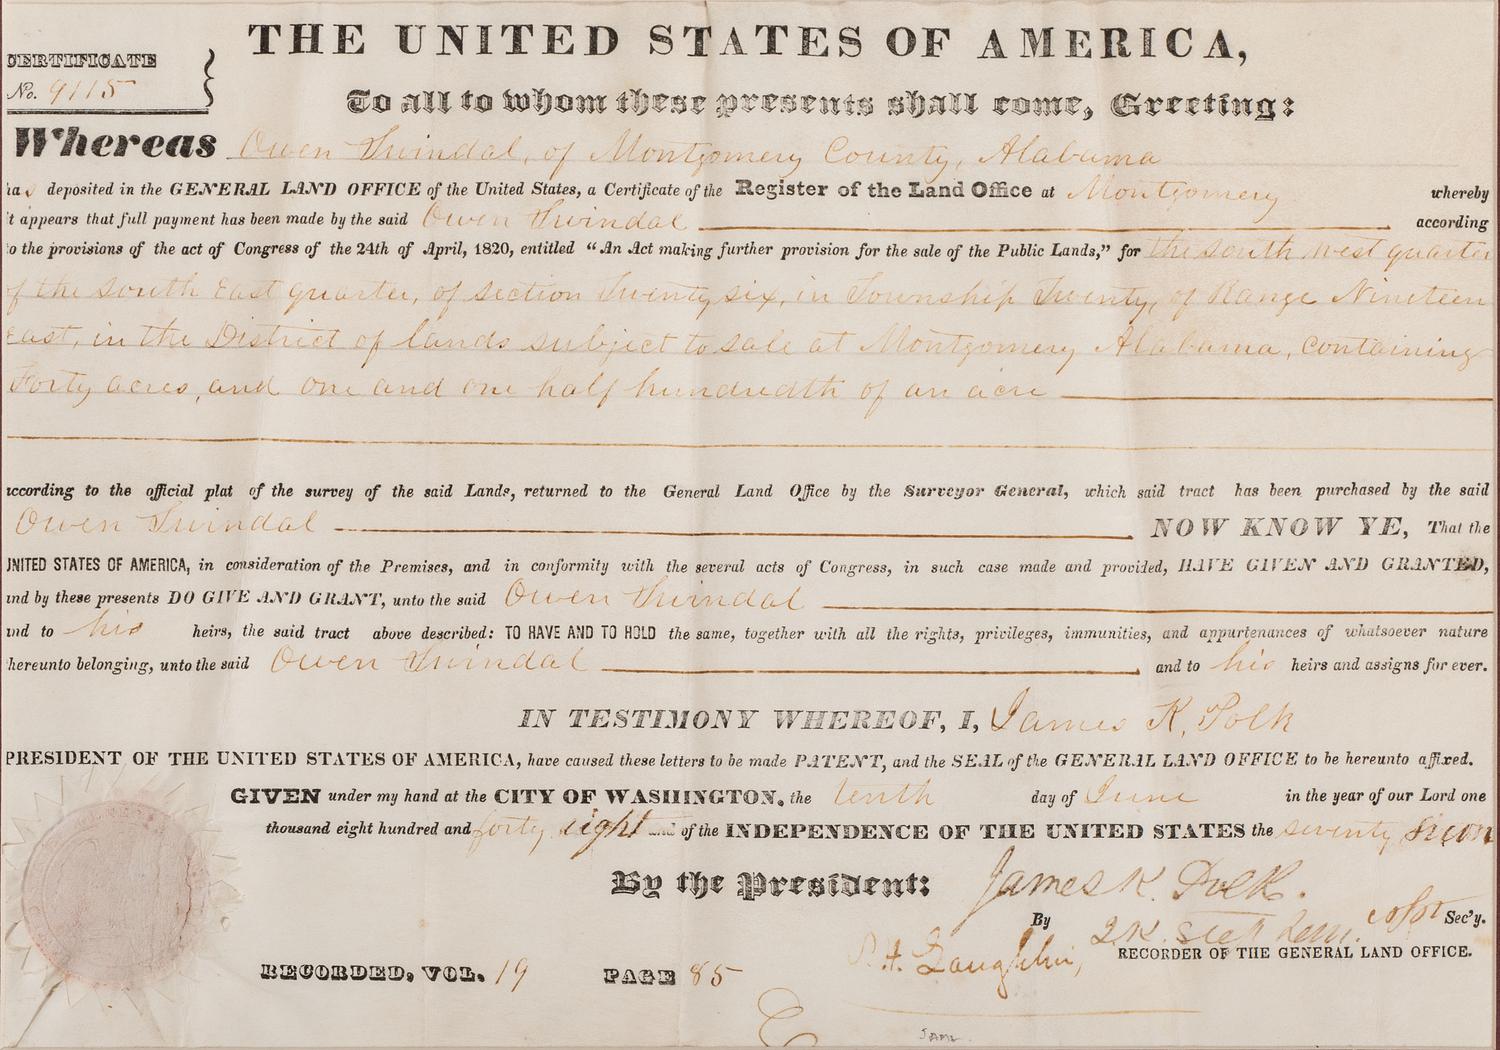 THE UNITED STATES OF AMERICA,
CERTIFICATE
No. 9115
To all to whom these presents shall come, Greeting:
Whereas Owen Swindal, of Montgomery County, Alabama
has deposited in the GENERAL LAND OFFICE of the United States, a Certificate of the Register of the Land Office at Montgomery whereby
t appears that full payment has been made by the said Owen Swindal according
to the provisions of the act of Congress of the 24th of April, 1820, entitled “An Act making further provision for the sale of the Public Lands,” for the South West quarter
of the South East quarter, of section Twenty six, in Township Twenty, of Range Nineteen
East, in the District of lands subject to sale at Montgomery Alabama, containing
Forty acres, and one and one half hundredth of an acre
according to the official plat of the survey of the said Lands, returned to the General Land Office by the Surveyor General, which said tract has been purchased by the said
Owen Swindal NOW KNOW YE, That the
UNITED STATES OF AMERICA, in consideration of the Premises, and in conformity with the several acts of Congress, in such case made and provided, HAVE GIVEN AND GRANTED,
and by these presents DO GIVE AND GRANT, unto the said Owen Swindal
and to his heirs, the said tract above described: TO HAVE AND TO HOLD the same, together with all the rights, privileges, immunities, and appurtenances of whatsoever nature
thereunto belonging, unto the said Owen Swindal and to his heirs and assigns for ever.
IN TESTIMONY WHEREOF, I, James K. Polk
PRESIDENT OF THE UNITED STATES OF AMERICA, have caused these letters to be made PATENT, and the SEAL of the GENERAL LAND OFFICE to be hereunto affixed.
GIVEN under my hand at the CITY OF WASHINGTON, the tenth day of June in the year of our Lord one
thousand eight hundred and forty eight and of the INDEPENDENCE OF THE UNITED STATES the seventy Secon
By the President: James K. Polk.
By Sec'y.
S. H. Laughlin, RECORDER OF THE GENERAL LAND OFFICE.
RECORDED, VOL. 19 PAGE 85